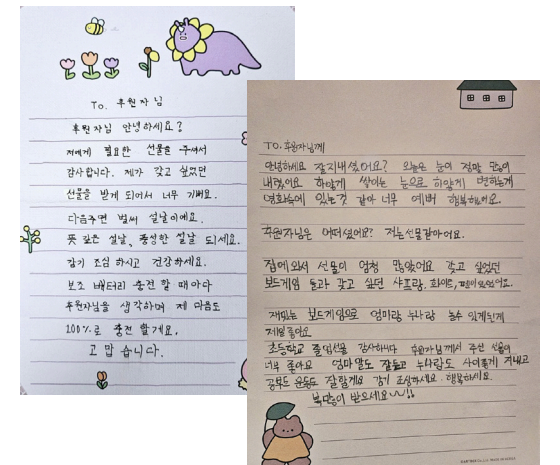 To. 후원자님
후원자님 안녕하세요?
저에게 필요한 선물을 주셔서
감사합니다. 제가 갖고 싶었던
선물을 받게 되어서 너무 기뻐요.
다음주면 벌써 설날이에요.
뜻 깊은 설날, 풍성한 설날 되세요.
감기 조심하시고 건강하세요.
보조 배터리 충전 할 때 마다
후원자님을 생각하며 제 마음도
100%로 충전 할게요.
고맙습니다.
TO. 후원자님께
안녕하세요 잘지내셨어요? 오늘은 눈이 정말 많이
내렸어요 하얗게 쌓이는 눈으로 하얗게 변하는게
영화속에 있는것 같아 너무 예뻐 행복했어요.
후원자님은 어떠셨어요? 저는 선물같아어요.
집에와서 선물이 엄청 많았어요 갖고 싶었던
보드게임 갖고 싶던 샤프랑, 화이트,
재밌는 보드게임으로 엄마랑 누나랑 놀수 있게된게
제일좋아요
초등학교 졸업선물 감사합니다 후원자님께서 주신 선물이
너무 좋아요 엄마 말도 잘듣고 누나랑도 사이좋게 지내고
공부도 운동도 잘할게요 감기 조심하세요 행복하세요.
복많이 받으세요~!!